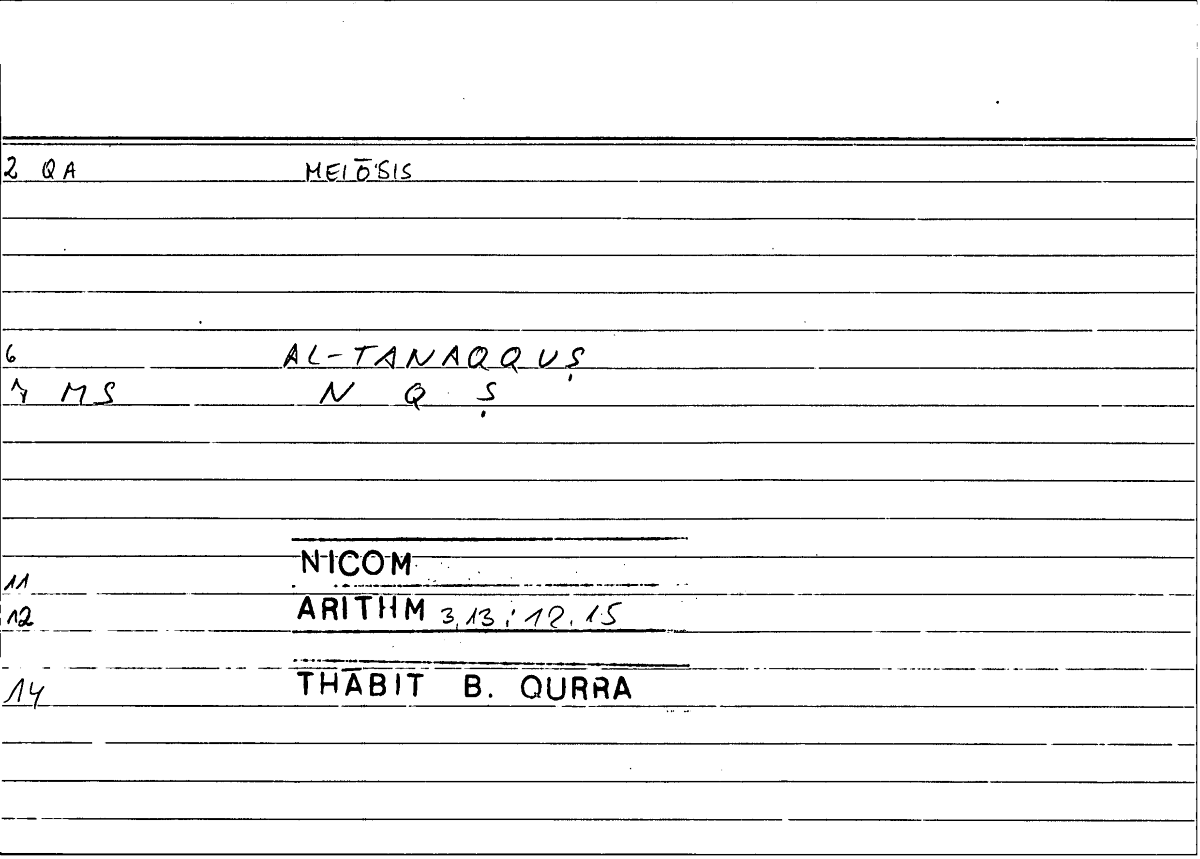 2 QA MEIŌSIS
6 AL-TANAQQUṢ
7 MS N Q Ṣ
11 NICOM
12 ARITHM 3,13; 12.15
14 THĀBIT B. QURRA